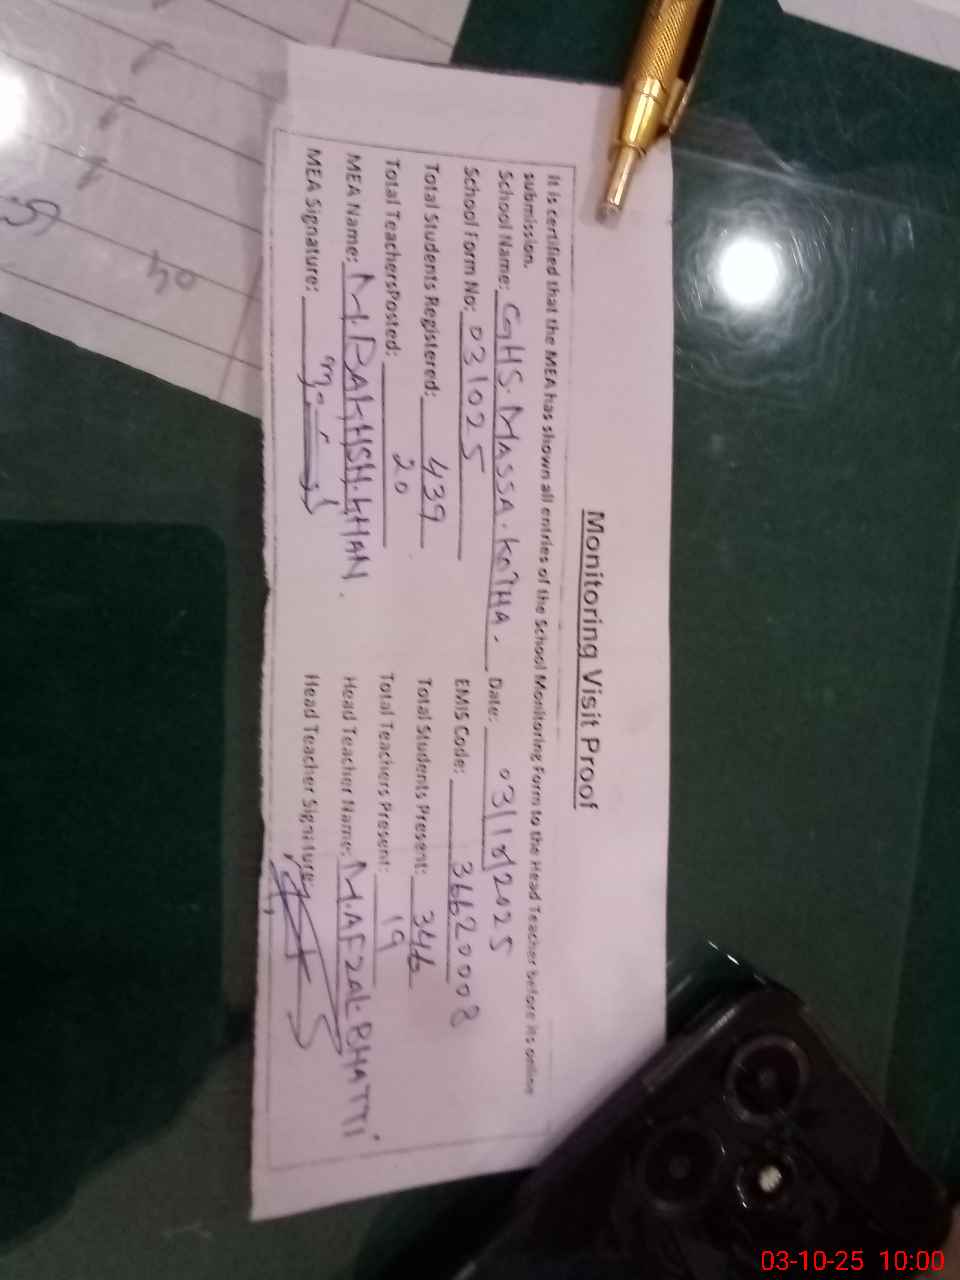 Monitoring Visit Proof
It is certified that the MEA has shown all entries of the School Monitoring Form to the Head Teacher before its online
submission.
School Name: GHS. MASSA. KOTHA. Date: 03/10/2025
School Form No: 031025 EMIS Code: 36620008
Total Students Registered: 439 Total Students Present: 346
Total TeachersPosted: 20 Total Teachers Present: 19
MEA Name: M. BAKHSH. KHAN. Head Teacher Name: M. AFZAL BHATTI
MEA Signature: Head Teacher Signature:
04
03-10-25 10:00